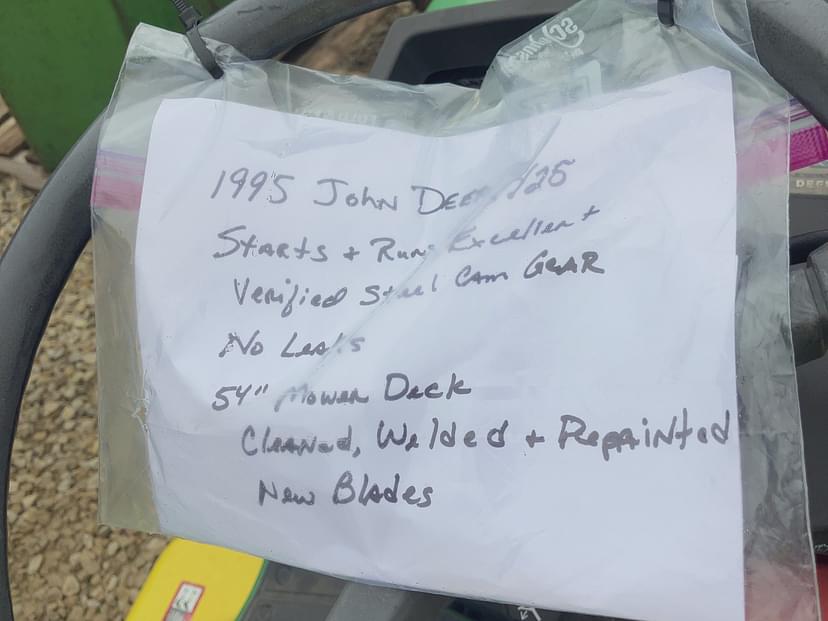 1995 John Deere 425
Starts + Runs Excellent
Verified Steel Cam Gear
No Leaks
54" Mower Deck
Cleaned, Welded + Repainted
New Blades